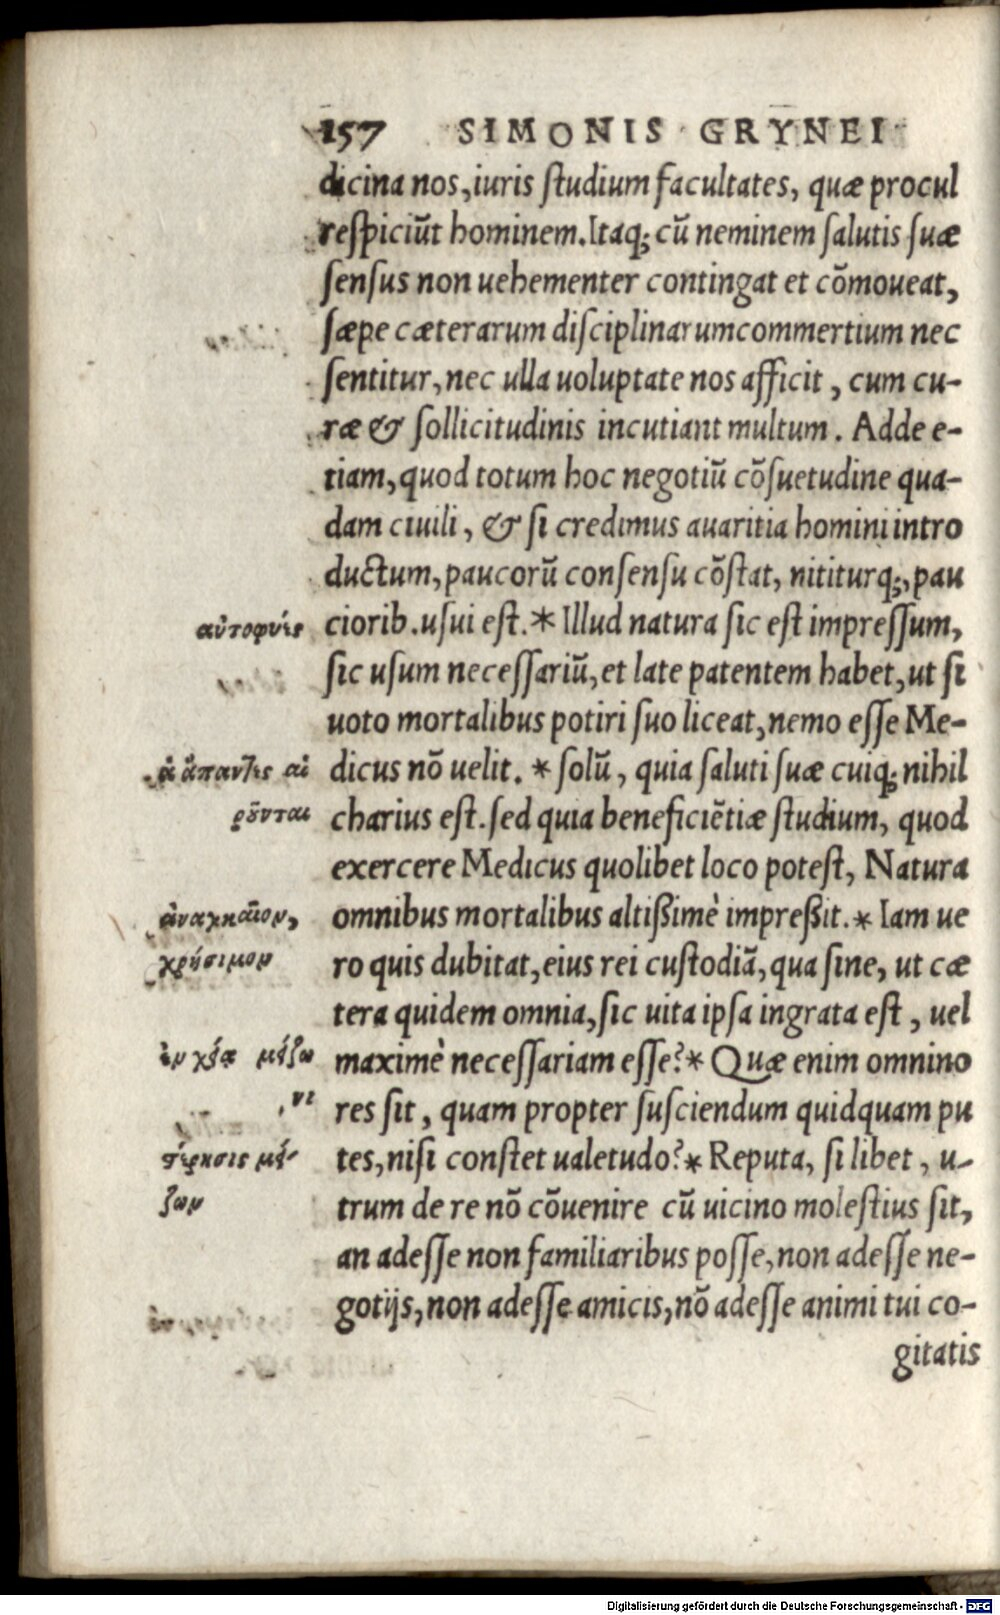 157 SIMONIS GRYNEI
dicina nos, iuris ſtudium facultates, quæ procul
reſpiciũt hominem. Itaq; cũ neminem ſalutis ſuæ
ſenſus non uehementer contingat et cõmoueat,
ſæpe cæterarum diſciplinarumcommertium nec
ſentitur, nec ulla uoluptate nos afficit, cum cu-
ræ & ſollicitudinis incutiant multum. Adde e-
tiam, quod totum hoc negotiũ cõſuetudine qua-
dam ciuili, & ſi credimus auaritia homini intro
ductum, paucorũ conſenſu cõſtat, nititurq;, pau
αὐτοφυὲς
ciorib. uſui eſt. * Illud natura ſic eſt impreſſum,
ſic uſum neceſſariũ, et late patentem habet, ut ſi
uoto mortalibus potiri ſuo liceat, nemo eſſe Me-
ἃ ἅπαντες αἱ
dicus nõ uelit. * ſolũ, quia ſaluti ſuæ cuiq; nihil
ροῦνται
charius eſt. ſed quia beneficiẽtiæ ſtudium, quod
exercere Medicus quolibet loco poteſt, Natura
ἀναγκαῖον,
omnibus mortalibus altißimè impreßit. * Iam ue
χρήσιμον
ro quis dubitat, eius rei cuſtodiã, qua ſine, ut cæ
tera quidem omnia, ſic uita ipſa ingrata eſt, uel
μείζω
maximè neceſſariam eſſe? * Quæ enim omnino
res ſit, quam propter ſuſciendum quidquam pu
μεί-
tes, niſi conſtet ualetudo? * Reputa, ſi libet, u-
ζων
trum de re nõ cõuenire cũ uicino moleſtius ſit,
an adeſſe non familiaribus poſſe, non adeſſe ne-
gotijs, non adeſſe amicis, nõ adeſſe animi tui co-
gitatis
Digitalisierung gefördert durch die Deutsche Forschungsgemeinschaft - DFG